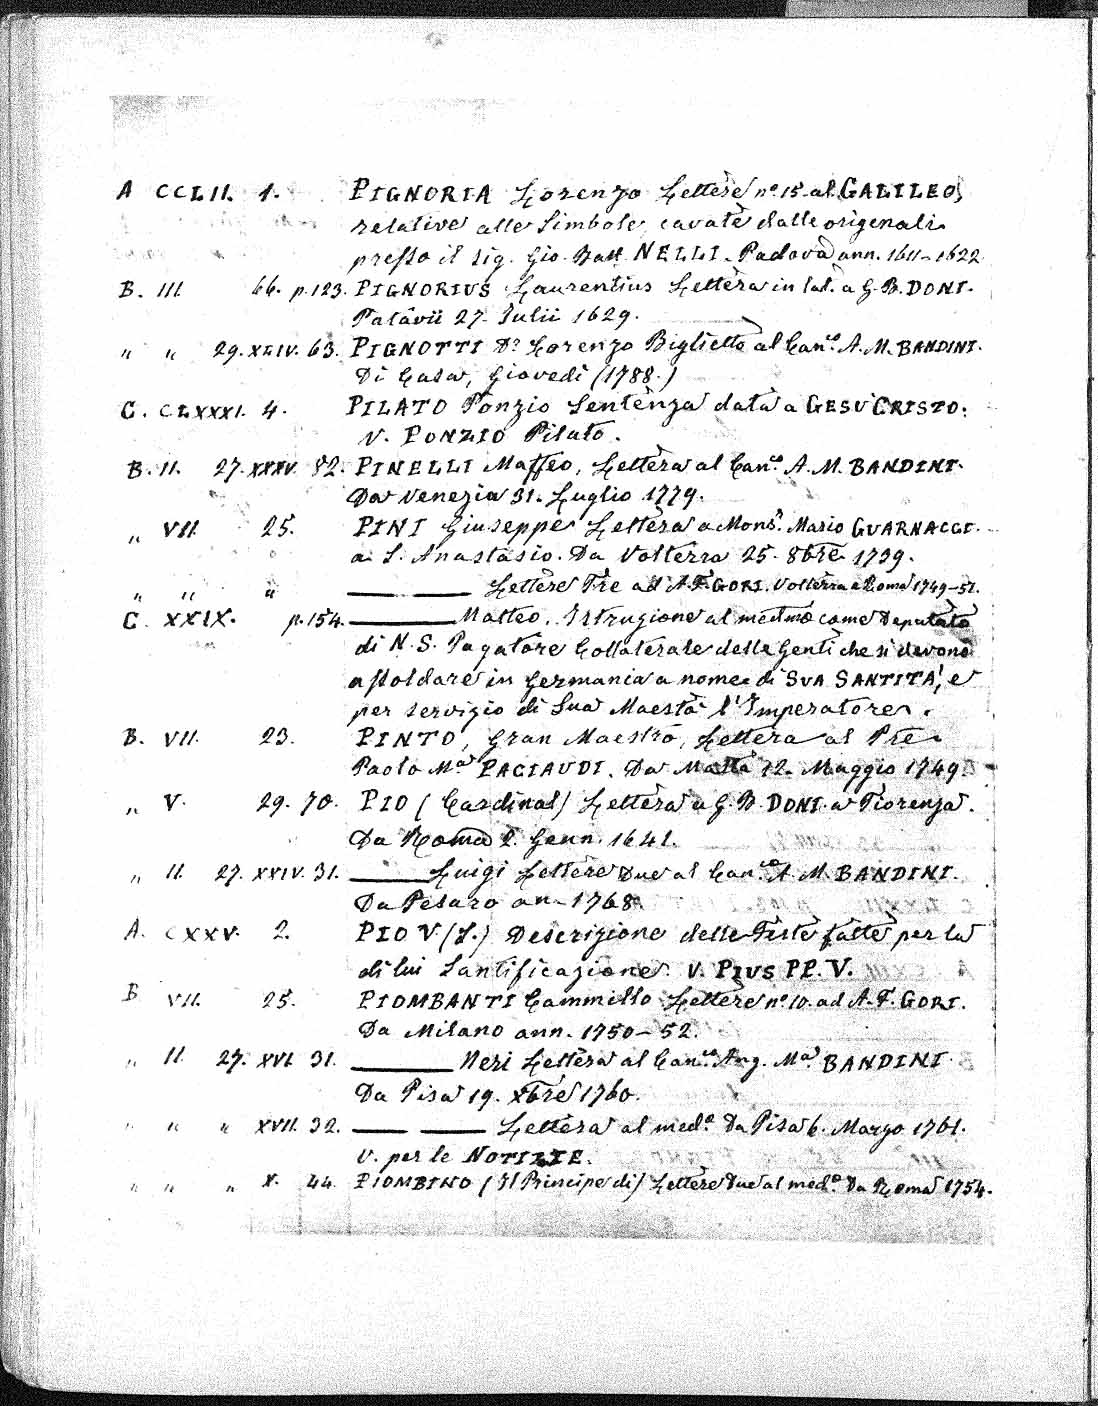 A CCLII. 1. PIGNORIA Lorenzo Lettere nº. 15. al GALILEO,
relative alle Simbole cavate dalle origenali
presso il sig. Gio. Batt. NELLI. Padova ann. 1611-1622
B. III. 66. p. 123. PIGNORIUS Laurentius Lettera in lat. a G. B. DONI.
Patavii 27. Julii 1629.
" " 29. XLIV. 63. PIGNOTTI Dr. Lorenzo Biglietto al Can.co A. M. BANDINI.
Di Casa, Giovedì (1788.)
C. CLXXXI. 4. PILATO Ponzio Sentenza data a GESU' CRISTO.
V. PONZIO Pilato.
B. II. 27. XXXV. 82. PINELLI Maffeo, Lettera al Can.co A. M. BANDINI.
Da Venezia 31. Luglio 1779.
" VII. 25. PINI Giuseppe Lettera a Mons.r Mario GUARNACCI.
a S. Anastasio. Da Volterra 25. 8bre 1739.
" " " —— —— Lettere Tre ad A. F. GORI. Volterra e Roma 1749-51.
C. XXIX. p. 154. —— Matteo. Istruzione al medmo come Deputato
di N. S. Pagatore Collaterale delle Genti che si devono
assoldare in Germania a nome di SUA SANTITA', e
per servizio di Sua Maestà l'Imperatore.
B. VII. 23. PINTO, Gran Maestro, Lettera al Pre
Paolo M.a PACIAUDI. Da Malta 12. Maggio 1749.
" V. 29. 70. PIO (Cardinal) Lettera a G. B. DONI a Fiorenza.
Da Roma 2. Genn. 1641.
" II. 27. XXIV. 31. —— Luigi Lettere Due al Can.co A. M. BANDINI.
Da Pesaro an. 1768
A. CXXV. 2. PIO V (S.) Descrizione delle Feste fatte per la
di lui Santificazione. V. PIUS PP. V.
B VII. 25. PIOMBANTI Cammillo Lettere nº. 10. ad A. F. GORI.
Da Milano ann. 1750-52.
" II. 27. XVI. 31. —— Neri Lettera al Can.co Ang. M.a BANDINI
Da Pisa 19. Xbre 1760.
" " " XVII. 32. —— —— Lettera al med.º Da Pisa 6. Marzo 1761.
V. per le NOTIZIE.
" " " X. 44. PIOMBINO (Il Principe di) Lettere Due al med.º Da Roma 1754.